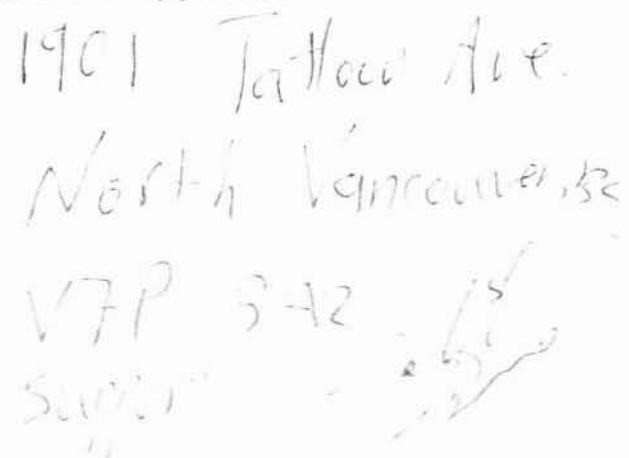 1901 Tatlow Ave.
North Vancouver, BC
V7P
Support